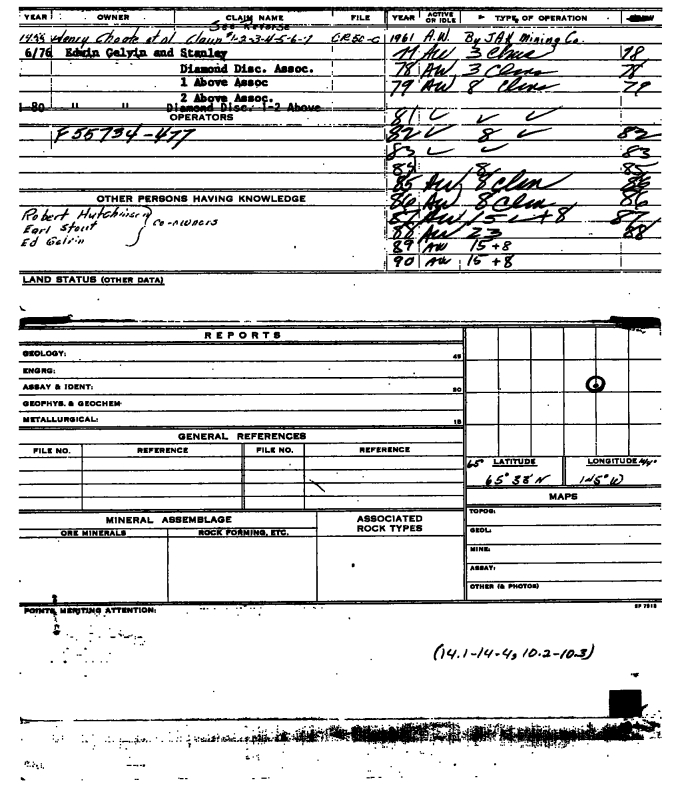 YEAR OWNER CLAIM NAME FILE YEAR ACTIVE OR IDLE TYPE OF OPERATION
See Reverse
Henry et al Claim #1-2-3-4-5-6-7 1961 A.W. By JAK Mining Co.
6/76 Edwin Gelvin and Stanley 77 AW 3 Clms 78
Diamond Disc. Assoc. 78 AW 3 Clms 78
1 Above Assoc 79 AW 8 Clms 79
2 Above Assoc.
1-80 " " Diamond Disc. 1-2 Above
OPERATORS 81 ✓ ✓ ✓
F 55734-477 82 ✓ 8 ✓ 82
83 ✓ ✓ 83
84 8 85
85 AW 8 Clm 86
OTHER PERSONS HAVING KNOWLEDGE 86 AW 8 Clm 86
Robert Hutchinson 87 AW 15 + 8 87
Earl Stout Co-owners 88 AW 23 88
Ed Gelvin 89 AW 15 + 8
90 AW 15 + 8
LAND STATUS (OTHER DATA)
REPORTS
GEOLOGY: 45
ENGRG:
ASSAY & IDENT: 20
GEOPHYS. & GEOCHEM
METALLURGICAL: 15
GENERAL REFERENCES
FILE NO. REFERENCE FILE NO. REFERENCE
65° LATITUDE LONGITUDE
65° 38' N 145° W
MAPS
MINERAL ASSEMBLAGE ASSOCIATED ROCK TYPES TOPOG:
ORE MINERALS ROCK FORMING, ETC. GEOL:
MINE:
ASSAY:
OTHER (& PHOTOS)
POINTS MERITING ATTENTION:
(14.1-14-4, 10.2-10.3)